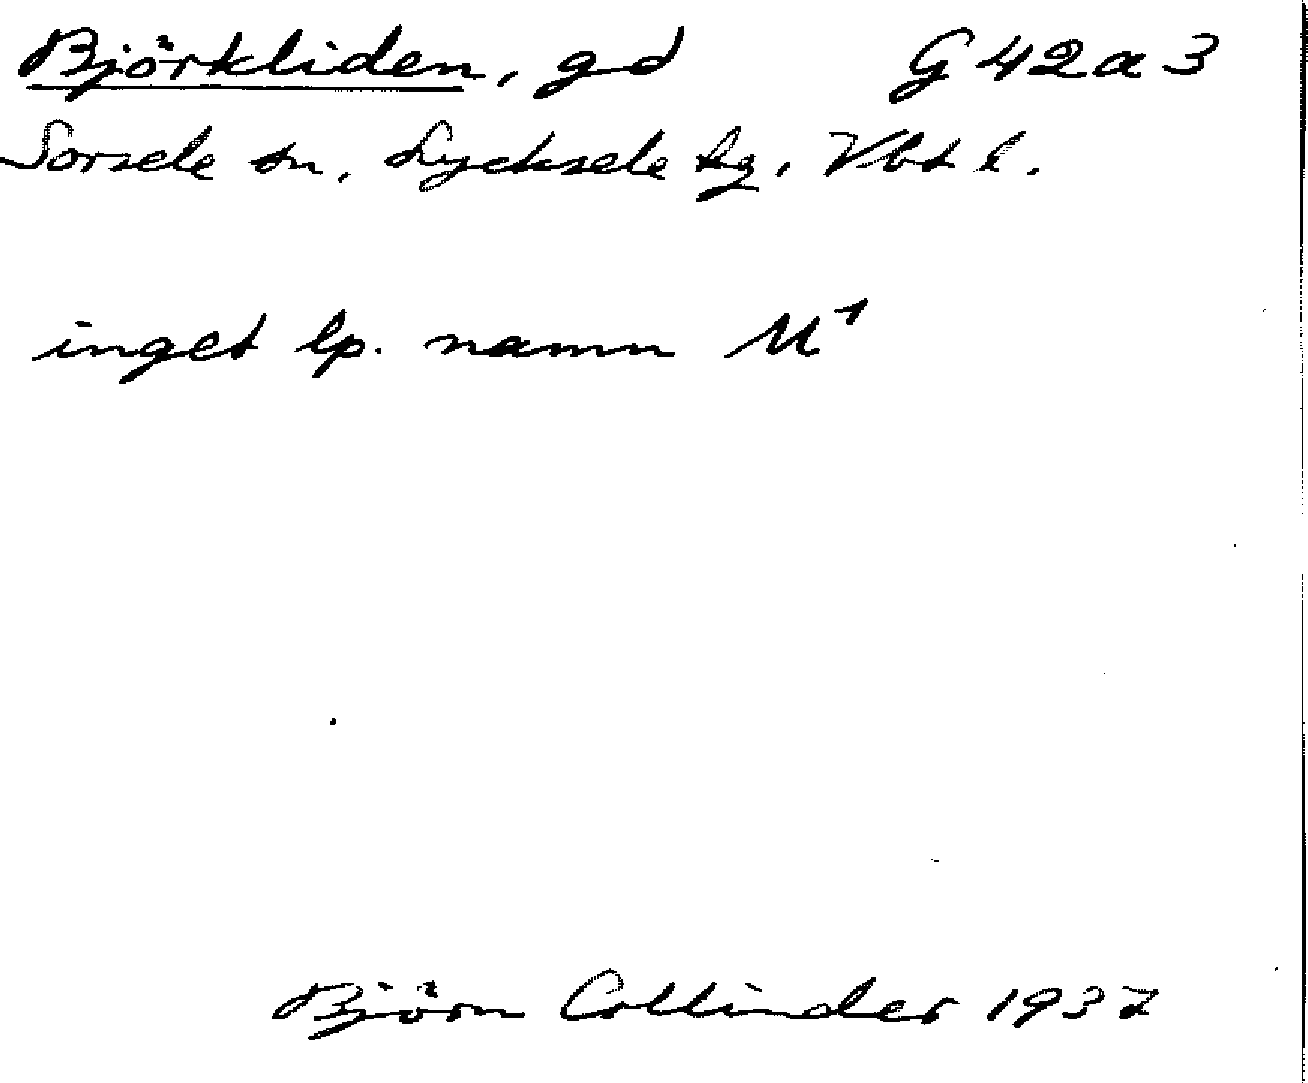 Björkliden, gd G 42 a 3
Sorsele sn, Lycksele lg, Vbt l.
inget lp. namn M1
Björn Collinder 1937